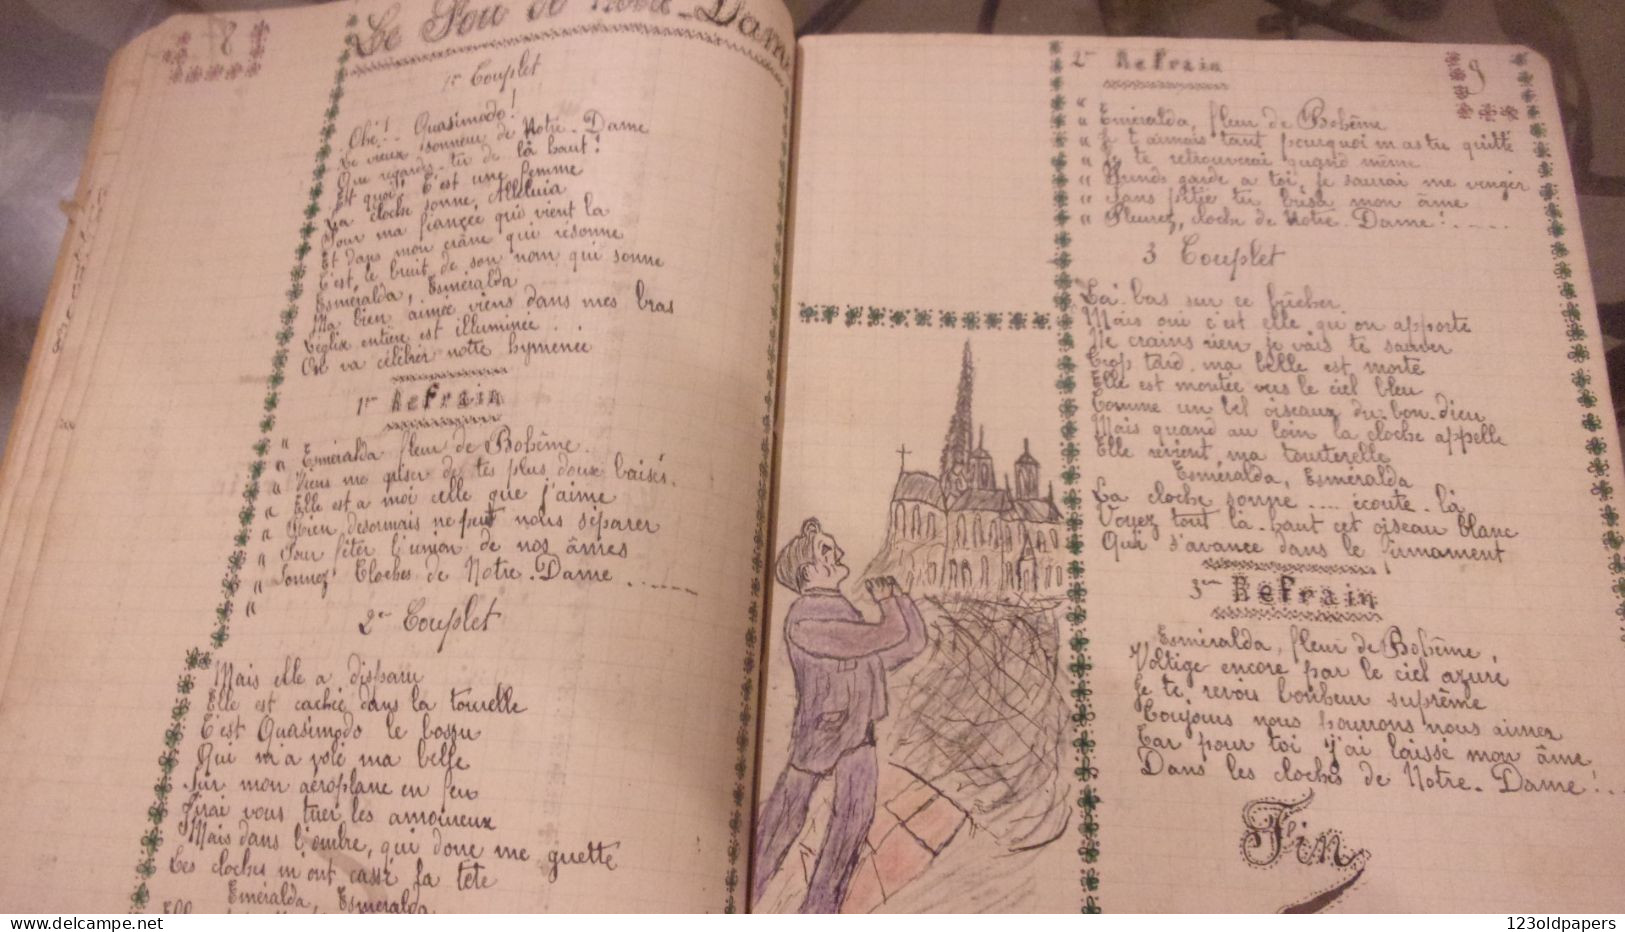 8
Le Fou de Notre-Dame
1er Couplet
Ohé! Quasimodo!
Le vieux sonneur de Notre-Dame
Que regardes-tu de là haut!
Est quoi! C'est une femme
La cloche sonne, Alleluia
Pour ma fiançée qui vient là
Et dans mon crâne qui résonne
C'est, le bruit de son nom qui sonne
Esméralda, Esméralda
Ma bien aimée viens dans mes bras
L'églix entière est illuminée
On va célébrer notre hymenée
1er Refrain
" Esméralda fleur de Bohême.
" Viens me griser de tes plus doux baisés.
" Elle est a moi celle que j'aime
" Rien desormais ne peut nous séparer
" Pour fêter l'union de nos âmes
" Sonnez Cloches de Notre-Dame ......
"
2e Couplet
Mais elle a disparu
Elle est cachée dans la tourelle
C'est Quasimodo le bossu
Qui m'a volé ma belle
Sur mon aéroplane en feu
J'irai vous tuer les amoureux
Mais dans l'ombre, qui donc me guette
Les cloches m'ont cassé la tête
Esméralda, Esmeralda
9
2me Refrain
" Esméralda, fleur de Bohême
" Je t'aimais tant pourquoi m'as tu quitté
" Je te retrouverai quand même
" Prends garde a toi, je saurai me venger
" Sans pitié tu brisa mon âme
" Pleurez, cloche de Notre-Dame!.....
3 Couplet
La-bas sur ce bûcher
Mais oui c'est elle qu'on apporte
Ne crains rien je vais te sauver
Trop tard ma belle est morte
Elle est montée vers le ciel bleu
Comme un bel oiseaux du-bon-dieu
Mais quand au loin la cloche appelle
Elle revient ma tourterelle
Esméralda, Esméralda
La cloche sonne .... écoute-là
Voyez tout là-haut cet oiseau blanc
Qui s'avance dans le firmament
3em Refrain
Esméralda, fleur de Bohême,
Voltige encore par le ciel azuré
Je te revois bonheur suprême
Toujours nous pourrons nous aimer
Car pour toi j'ai laissé mon âme
Dans les cloches de Notre-Dame!..
Fin
123oldpapers